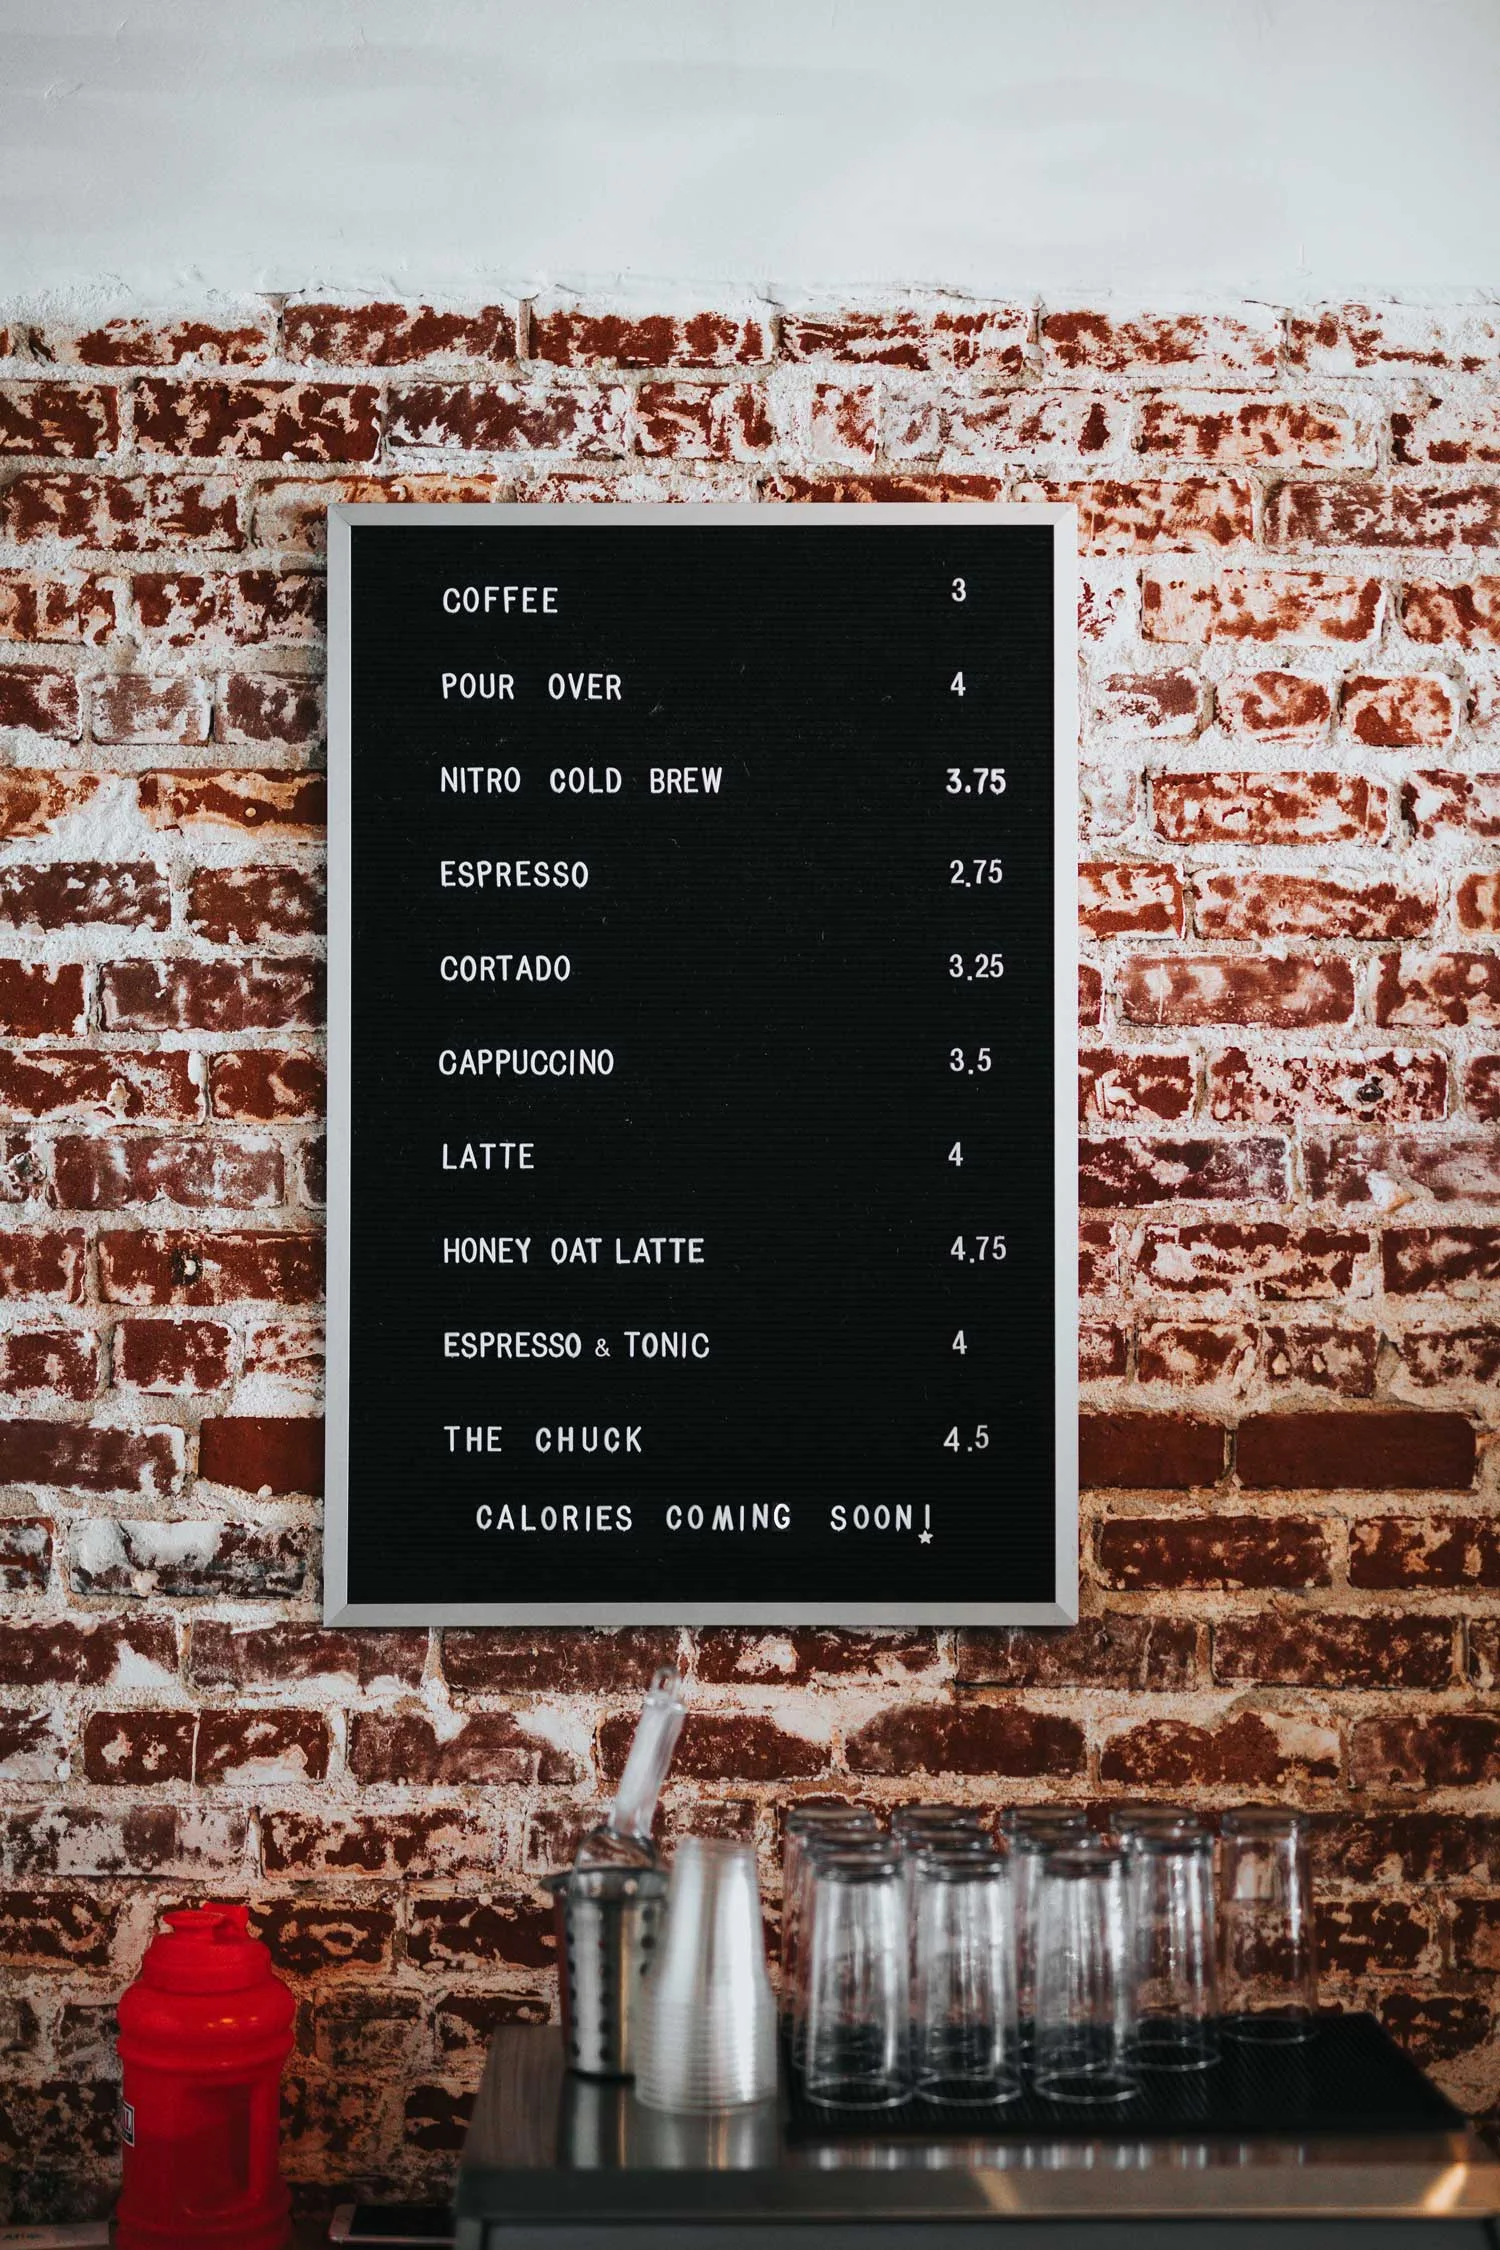 COFFEE 3
POUR OVER 4
NITRO COLD BREW 3.75
ESPRESSO 2.75
CORTADO 3.25
CAPPUCCINO 3.5
LATTE 4
HONEY OAT LATTE 4.75
ESPRESSO & TONIC 4
THE CHUCK 4.5
CALORIES COMING SOON!